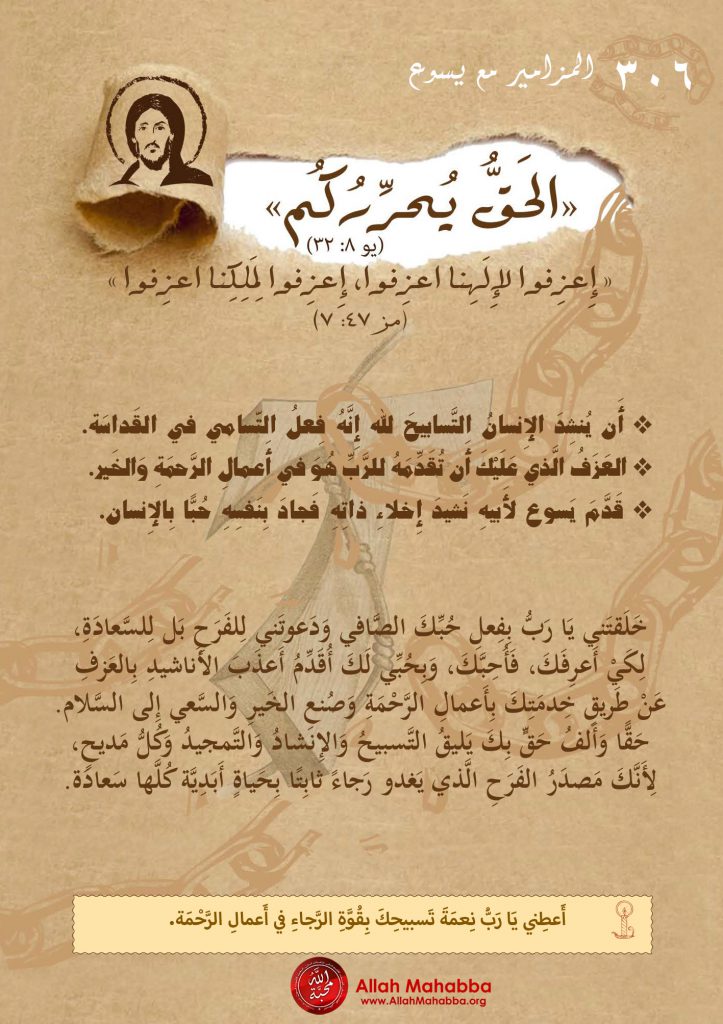 ٣٠٦ المزامير مع يسوع
«الحَقُّ يُحرِّرُكُم»
(يو ٨: ٣٢)
«إِعزِفوا لإِلَهِنا اعزِفوا، إِعزِفوا لِمَلِكِنا اعزِفوا»
(مز ٤٧: ٧)
❖ أَن يُنشِدَ الإِنسانُ التَّسابيحَ لله إِنَّهُ فِعلُ التّسامي في القَداسَة.
❖ العَزَفُ الَّذي عَلَيْكَ أَن تُقَدِّمَهُ للرَّبِّ هُوَ في أَعمالِ الرَّحمَةِ وَالخَير.
❖ قَدَّمَ يَسوع لأَبيهِ نَشيدَ إِخلاءِ ذاتِهِ فَجادَ بِنَفسِهِ حُبًّا بِالإِنسان.
خَلَقتَني يَا رَبُّ بِفِعلِ حُبِّكَ الصَّافي وَدَعوتَني لِلفَرَحِ بَل لِلسَّعادَةِ،
لِكَيْ أَعرِفَكَ، فَأُحِبَّكَ، وَبِحُبِّي لَكَ أُقَدِّمُ أَعذَبَ الأَناشيدِ بِالعَزفِ
عَنْ طَريقِ خِدمَتِكَ بِأَعمالِ الرَّحْمَةِ وَصُنعِ الخَيرِ وَالسَّعي إِلى السَّلام.
حَقًّا وَأَلفُ حَقٍّ بِكَ يَليقُ التَّسبيحُ وَالإِنشادُ وَالتَّمجيدُ وَكُلُّ مَديحٍ،
لِأَنَّكَ مَصدَرُ الفَرَحِ الَّذي يَغدو رَجاءً ثابِتًا بِحَياةٍ أَبَدِيَّة كُلَّها سَعادَة.
أَعطِني يَا رَبُّ نِعمَةَ تَسبيحِكَ بِقُوَّةِ الرَّجاءِ في أَعمالِ الرَّحْمَة.
الله محبّة
Allah Mahabba
www.AllahMahabba.org